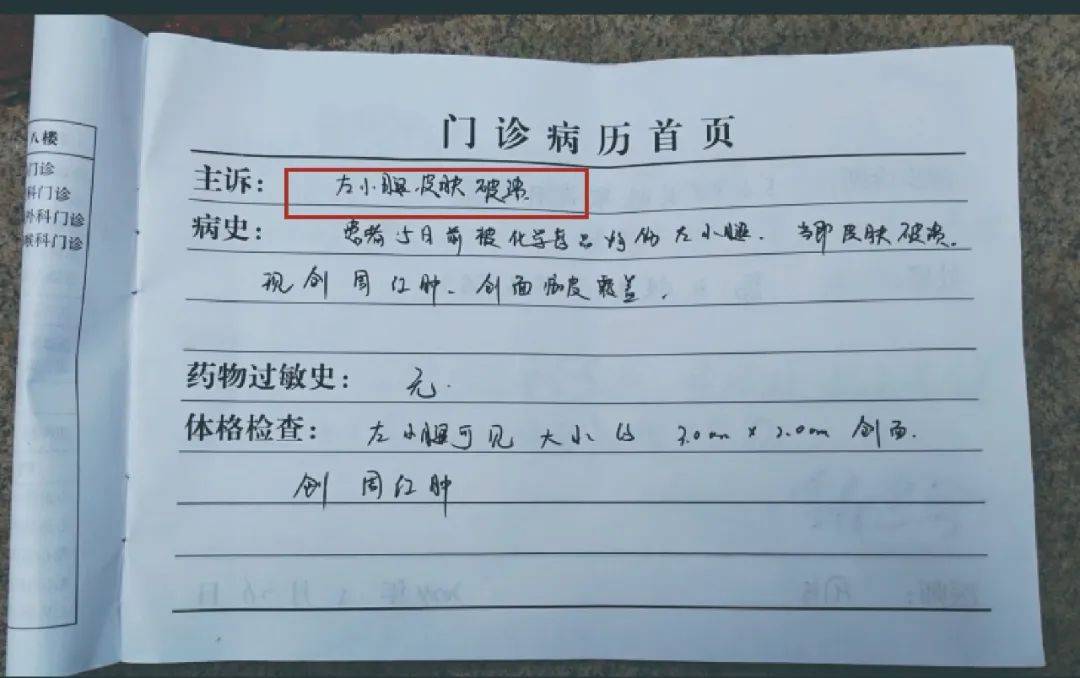 门诊病历首页
八楼
门诊
科门诊
外科门诊
喉科门诊
主诉: 左小腿皮肤破溃.
病史: 患者5日前被化学品灼伤左小腿. 当即皮肤破溃.
现创周红肿. 创面痂皮覆盖.
药物过敏史: 无.
体格检查: 左小腿可见大小约 3.0cm × 2.0cm 创面.
创周红肿